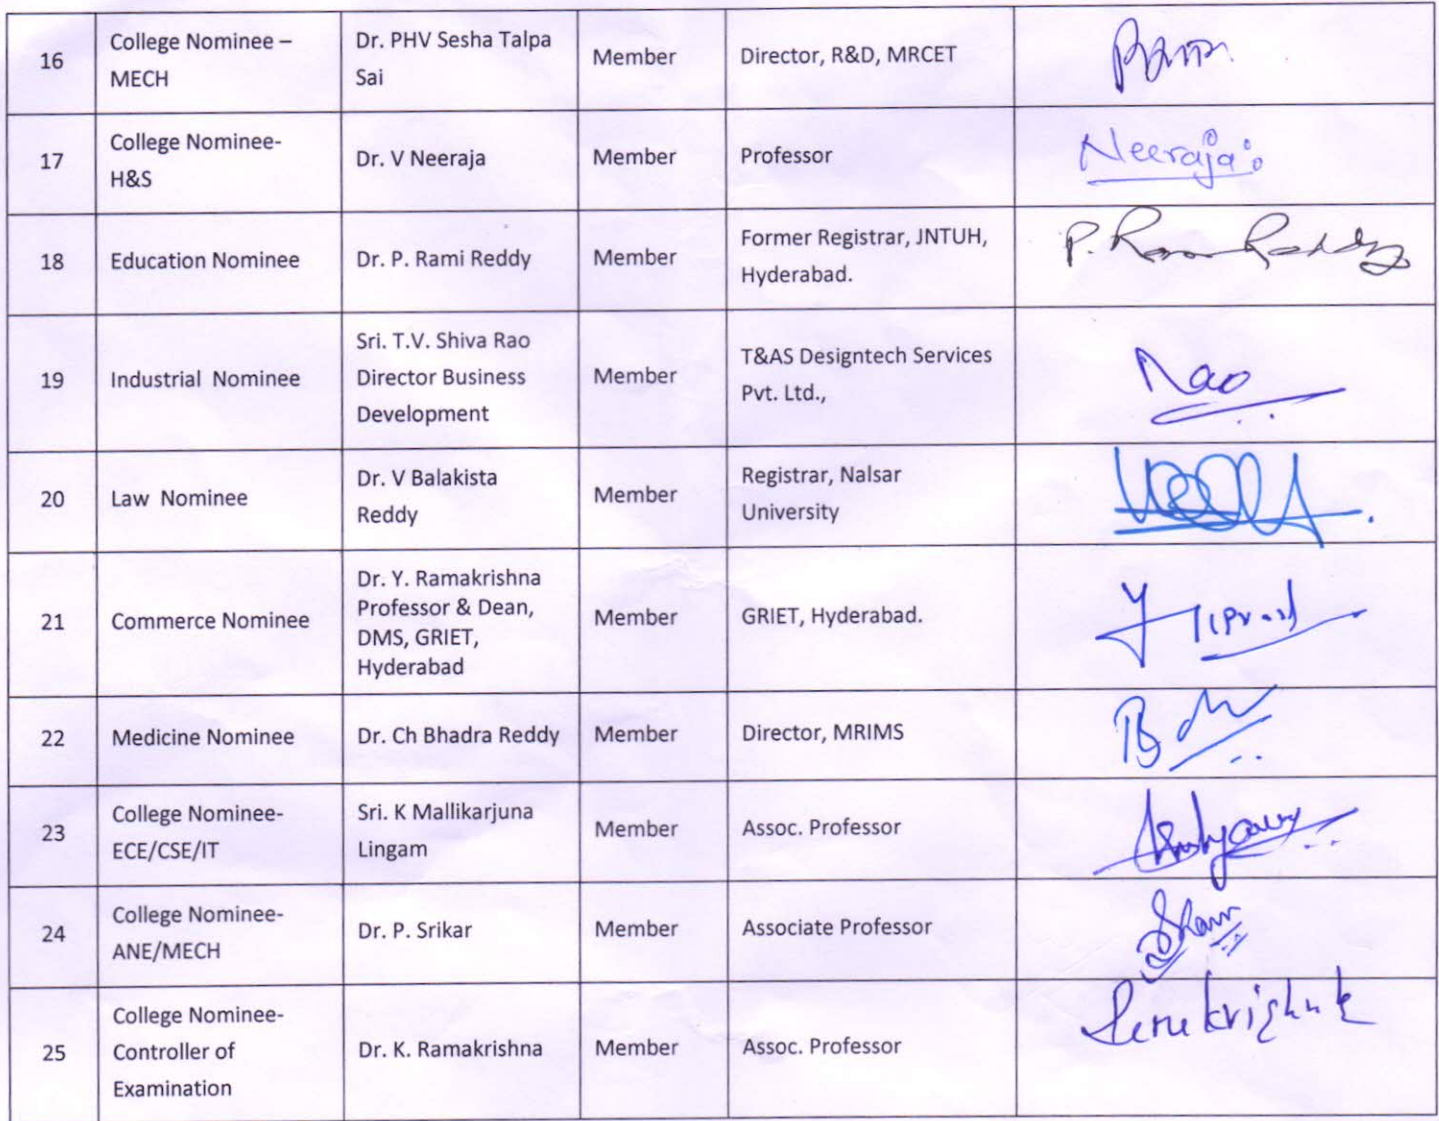 16
College Nominee –
MECH
Dr. PHV Sesha Talpa
Sai
Member
Director, R&D, MRCET
17
College Nominee-
H&S
Dr. V Neeraja
Member
Professor
Neeraja
18
Education Nominee
Dr. P. Rami Reddy
Member
Former Registrar, JNTUH,
Hyderabad.
P. Rami Reddy
19
Industrial  Nominee
Sri. T.V. Shiva Rao
Director Business
Development
Member
T&AS Designtech Services
Pvt. Ltd.,
Rao
20
Law  Nominee
Dr. V Balakista
Reddy
Member
Registrar, Nalsar
University
21
Commerce Nominee
Dr. Y. Ramakrishna
Professor & Dean,
DMS, GRIET,
Hyderabad
Member
GRIET, Hyderabad.
22
Medicine Nominee
Dr. Ch Bhadra Reddy
Member
Director, MRIMS
23
College Nominee-
ECE/CSE/IT
Sri. K Mallikarjuna
Lingam
Member
Assoc. Professor
24
College Nominee-
ANE/MECH
Dr. P. Srikar
Member
Associate Professor
25
College Nominee-
Controller of
Examination
Dr. K. Ramakrishna
Member
Assoc. Professor